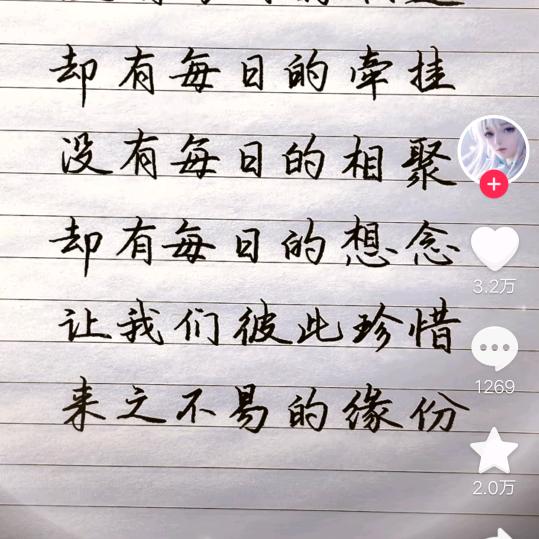 却有每日的牵挂
没有每日的相聚
却有每日的想念
3.2万
让我们彼此珍惜
1269
来之不易的缘份
2.0万